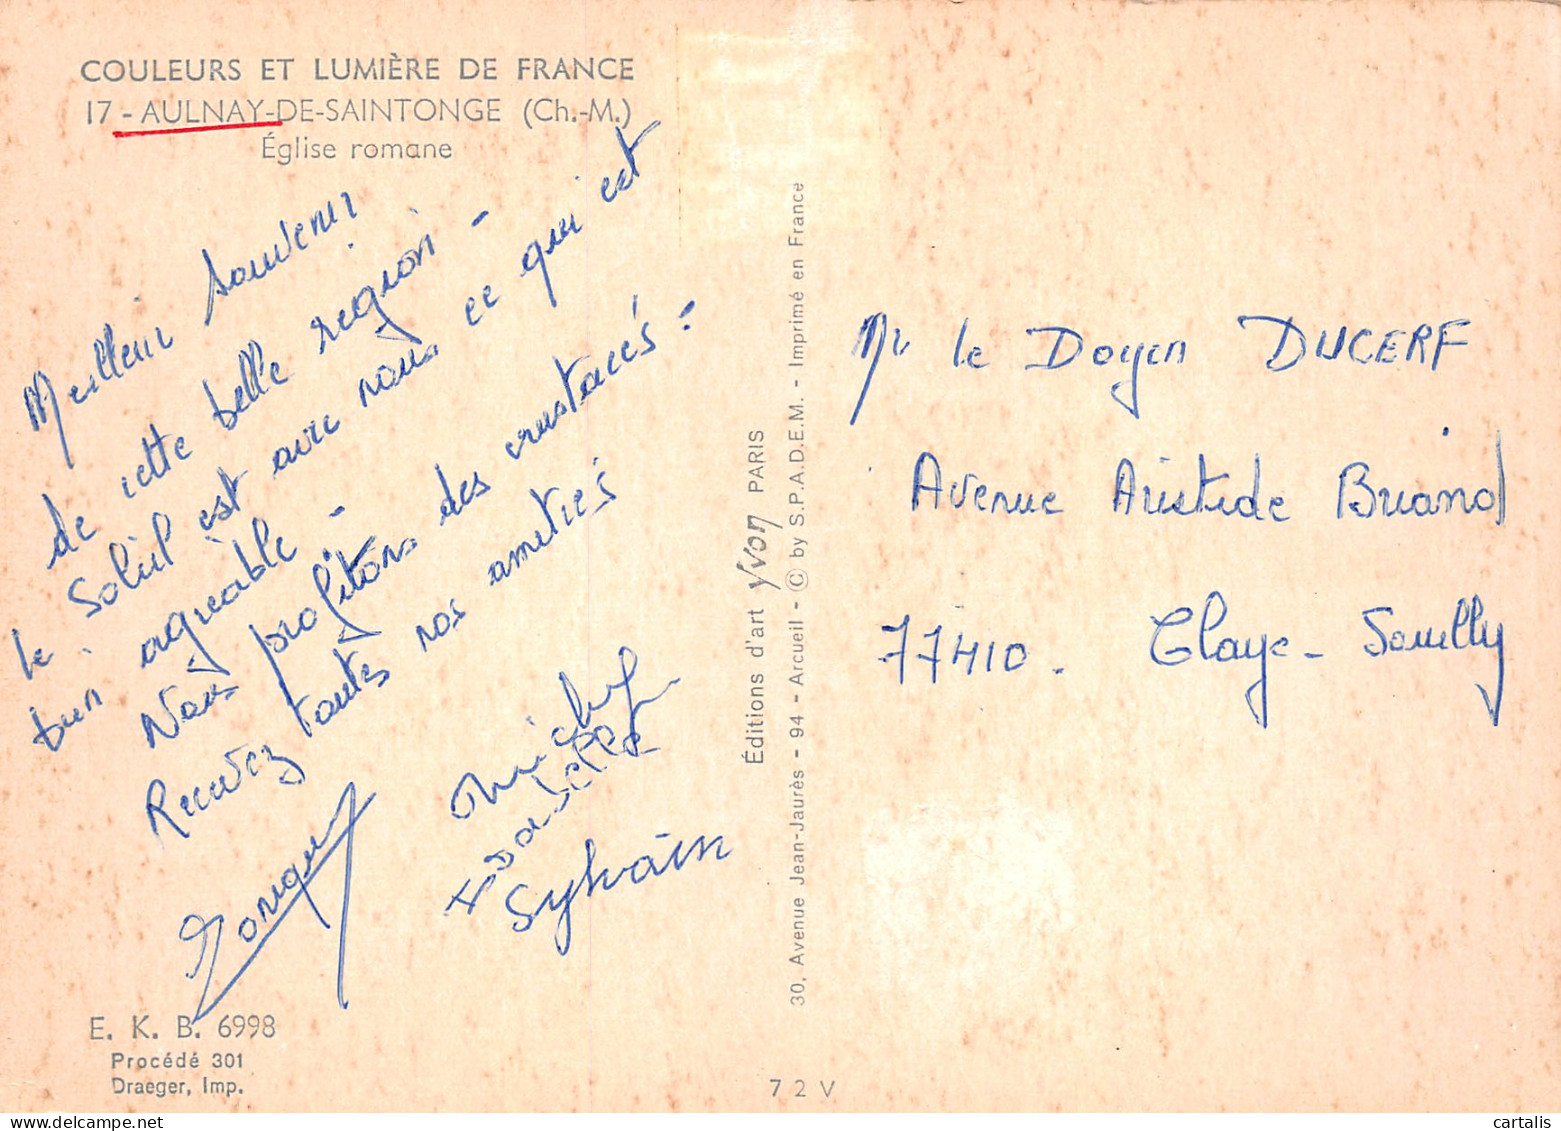 COULEURS ET LUMIÈRE DE FRANCE
17 - AULNAY-DE-SAINTONGE (Ch.-M.)
Église romane
Meilleur souvenir
de cette belle region -
le soleil est avec nous ce qui est
bien agréable -
Nous profitons des crustacés -
Recevez toutes nos amitiés
Michel
Isabelle
Sylvain
E. K. B. 6998
Procédé 301
Draeger, Imp.
Éditions d'art Yvon PARIS
30, Avenue Jean-Jaurès - 94 - Arcueil - © by S.P.A.D.E.M. - Imprimé en France
72V
Mr le Doyen DUCERF
Avenue Aristide Briand
77410 - Claye - Souilly
www.cartalis.com